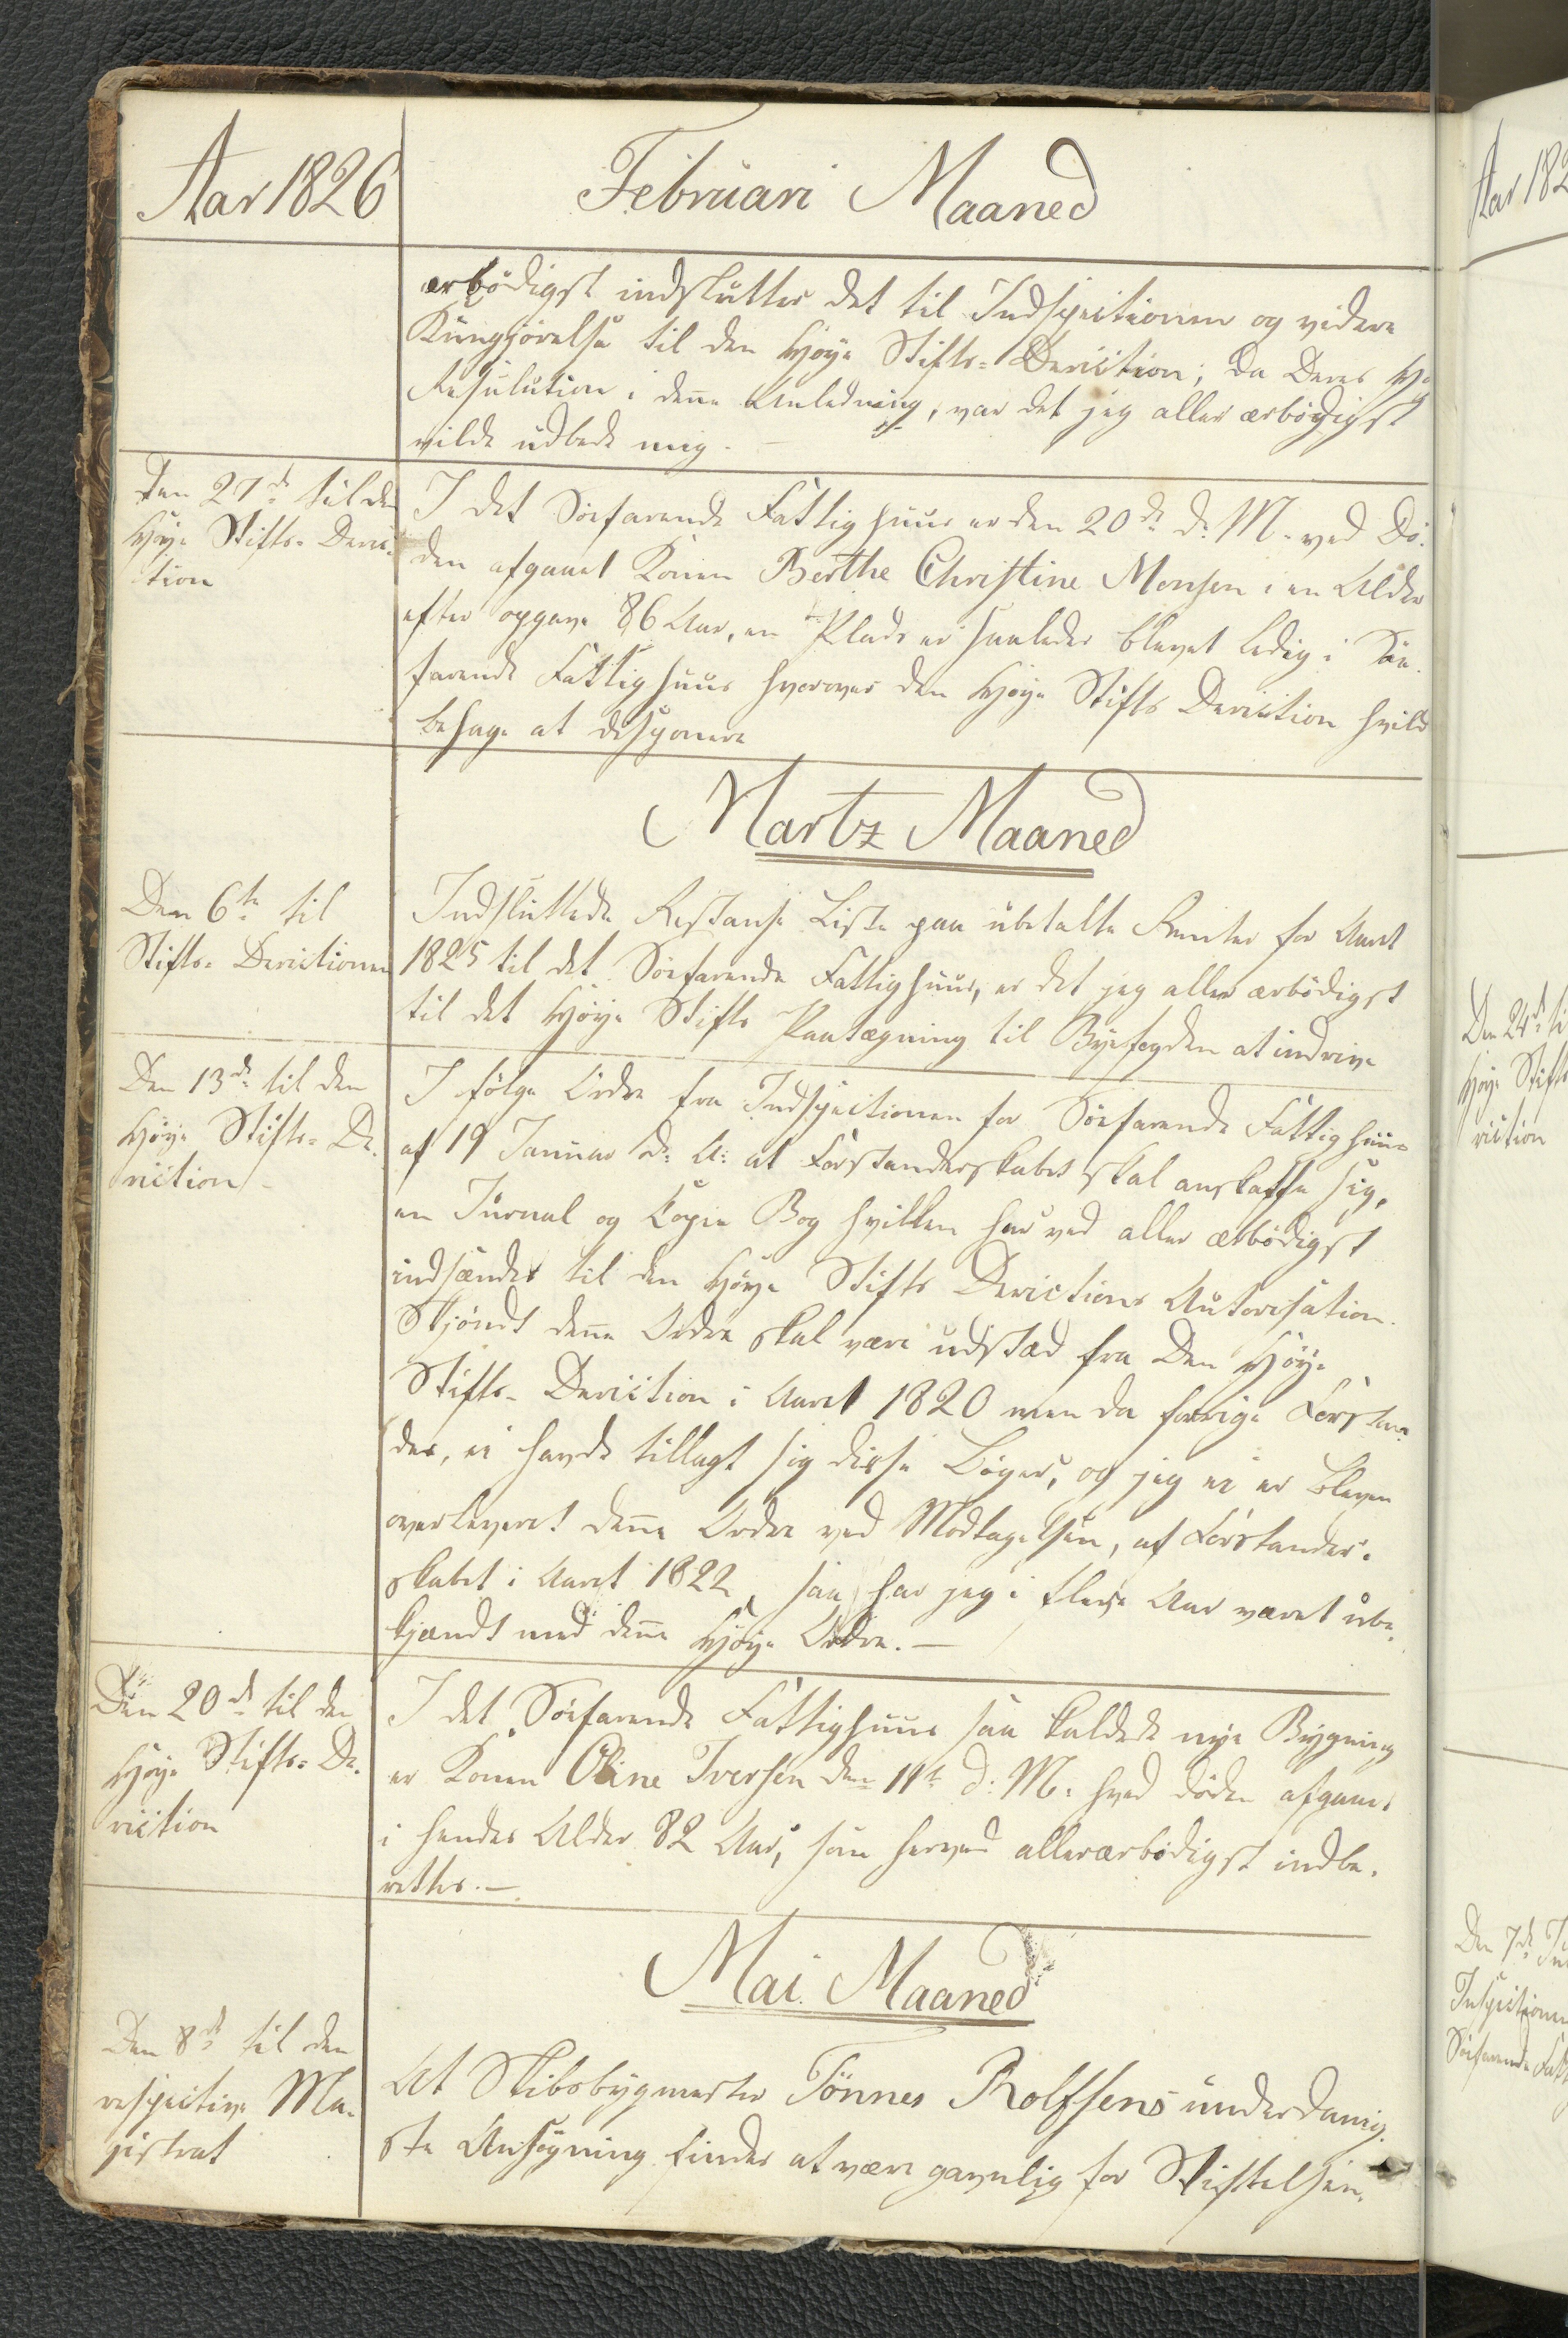 Aar 1826
Februari Maaned
ærbödigst indslutter det til Indspectionen og videre
Kungjörelse til den Høye Stifts-Derection; da Deres Hø
Resulution i dene Anledning, var det jeg aller ærbödigst
vilde udbede mig. —
Den 27de til den
Høye Stifts-Derec-
tion
I det Söefarende Fattighuus er den 20de d: M. ved Dö-
den afgaaet Konen Berthe Christine Monsen i en Alder
efter opgave 86 Aar, en Plads er saaledes blevet ledig i Söe
farende Fattighuus hvorover den Høye Stifts Derection hvild
behage at desponere
Martz Maaned
Den 6te til
Stifts-Derectionen
Indsluttede Restanse Liste paa ubetalte Renter for Aaret
1825 til det Söefarende Fattighuus, er det jeg aller ærbödigst
til det Høye Stifts Paategning til Byefogden at indrive
Den 13de til den
Høye Stifts-De-
rection
I fölge Ordre fra Indspectionen for Söefarende Fattighuus
af 19 Januar d: A: at Forstanderskabet skal anskaffe sig,
en Jurnal og Copie Bog hvilken her ved aller ærbödigst
indsændes til den Høye Stifts Derections Autorisation.
Skjöndt dene Ordre skal være udstæd fra Den Høye
Stifts-Derection i Aaret 1820 men da forrige Forstan-
der, ei havde tillagt sig disse Böger, og jeg ei er bleven
overleveret dene Ordre ved Modtagelsen, af Forstander-
skabet i Aaret 1822, saa har jeg i flere Aar været ube-
kjændt med dene Høye Ordre. —
Den 20de til den
Høye Stifts-De-
rection
I det Söefarende Fattighuus saa kaldede nye Bygning
er Konen Oline Iversen den 11te d: M: hved döden afgaaet
i hendes Alder 82 Aar, som herved allerærbödigst indbe-
rettes. —
Mai Maaned
Den 8de til den
respective Ma-
gistrat
At Skibsbygmester Tönnes Rolfsens underdanig-
ste Ansögning findes at være gavnlig for Stiftelsen,
Aar 182
Den 24de ti
Høye Stifts
rection
Den 7de Ju
Inspectionen
Söefarende Fatt